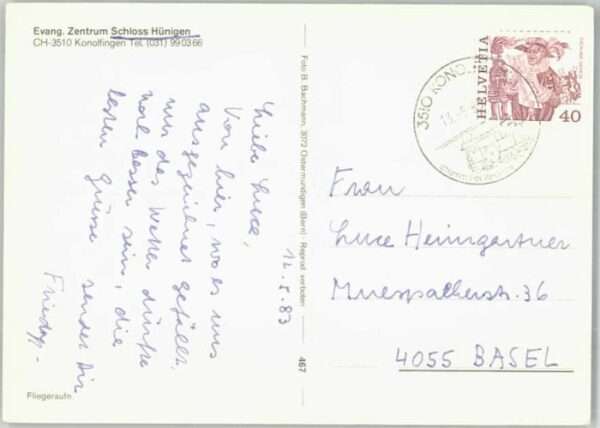 Evang. Zentrum Schloss Hünigen
CH-3510 Konolfingen Tel. (031) 99 03 66
12.5.83
Liebe Luce,
Von hier, wo es uns
ausgezeichnet gefällt
nur das Wetter dürfte
noch besser sein, die
besten Grüsse sendet Dir
Fliegeraufn
Foto B. Bachmann, 3072 Ostermundigen (Bern) - Reprod. verboten
467
3510 KONOL
HELVETIA
40
Frau
Luce Heimgartner
Muespacherstr. 36
4055 BASEL